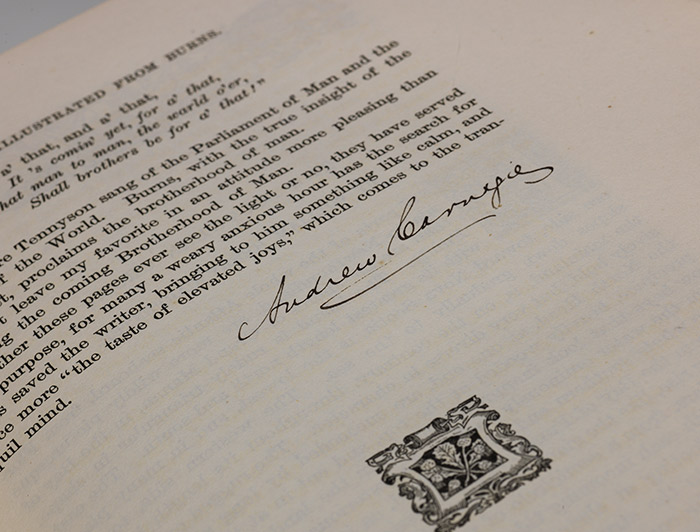 ILLUSTRATED FROM BURNS.
a' that, and a' that,
It 's comin' yet, for a' that,
man to man, the warld o'er,
Shall brothers be for a' that!"
Tennyson sang of the Parliament of Man and the
of the World. Burns, with the true insight of the
proclaims the brotherhood of man.
leave my favorite in an attitude more pleasing than
the coming Brotherhood of Man.
these pages ever see the light or no, they have served
purpose, for many a weary anxious hour has the search for
saved the writer, bringing to him something like calm, and
more "the taste of elevated joys," which comes to the tran-
quil mind.
Andrew Carnegie